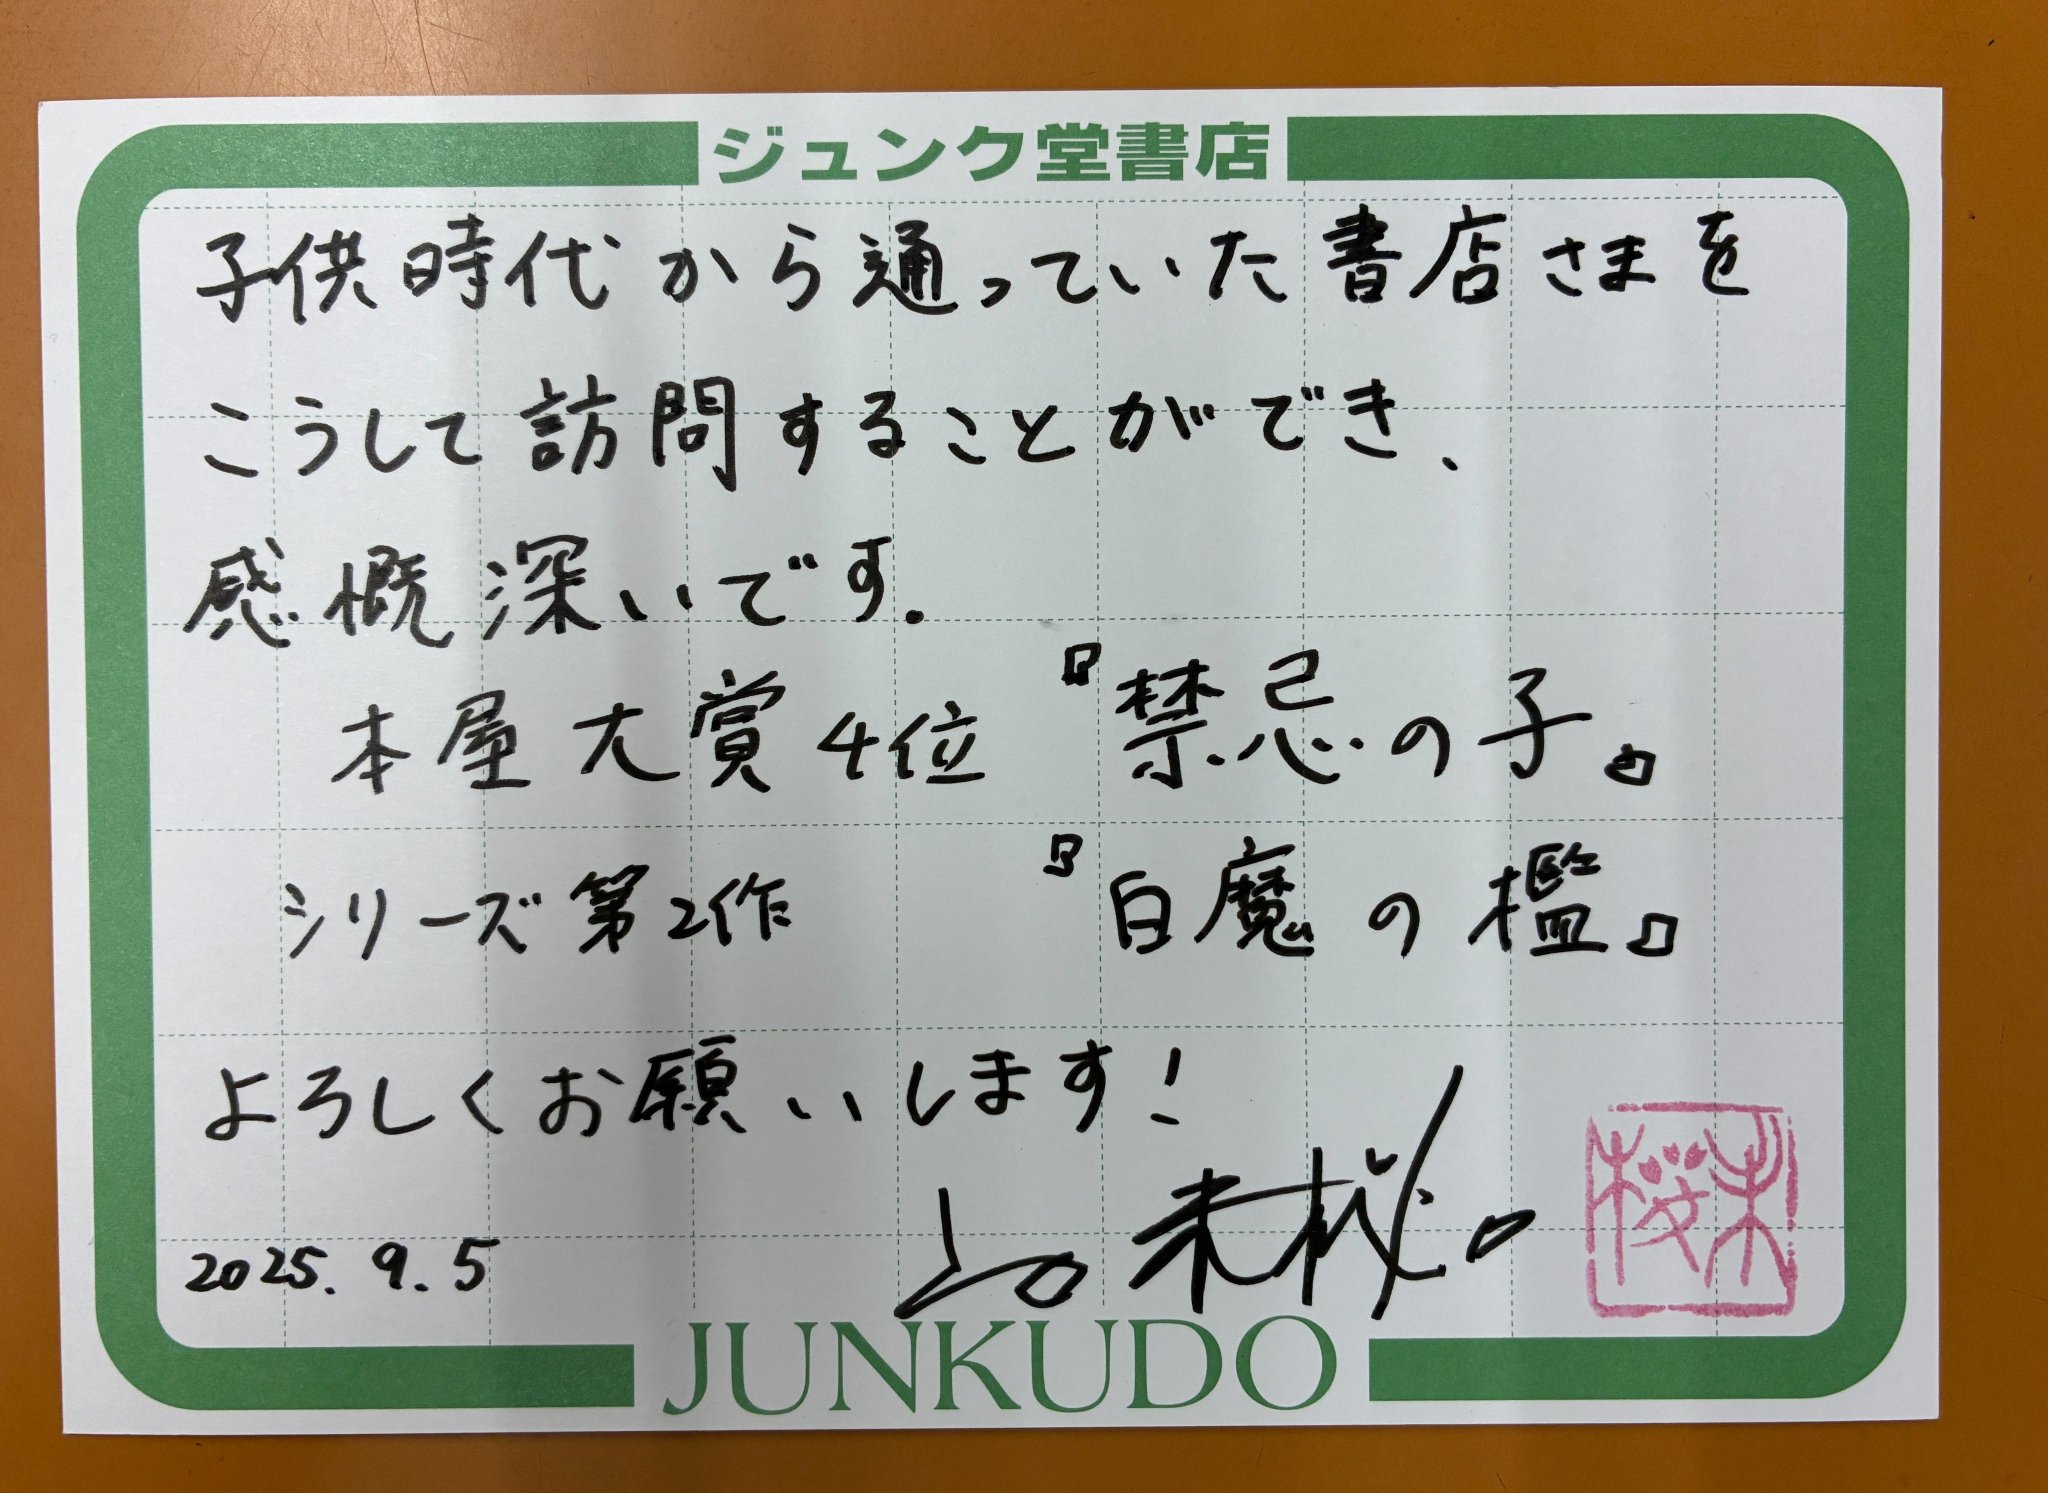 ジュンク堂書店
子供時代から通っていた書店さまを
こうして訪問することができ、
感慨深いです.
本屋大賞4位 『禁忌の子』
シリーズ第2作 『白魔の檻』
よろしくお願いします!
山口未桜
未桜
2025.9.5
JUNKUDO